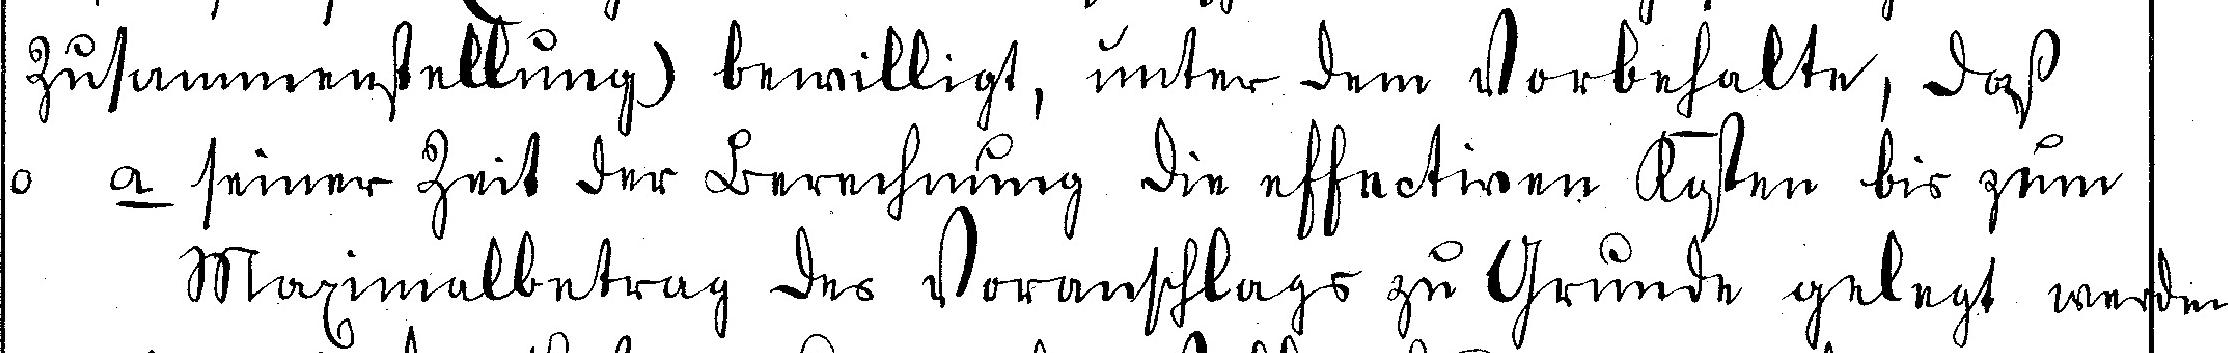 Zusammenstellung) bewilligt, unter dem Vorbehalte, daß
o a seiner Zeit der Berechnung die effectiven Kosten bis zum
Maximalbetrag des Voranschlags zu Grunde gelegt werden